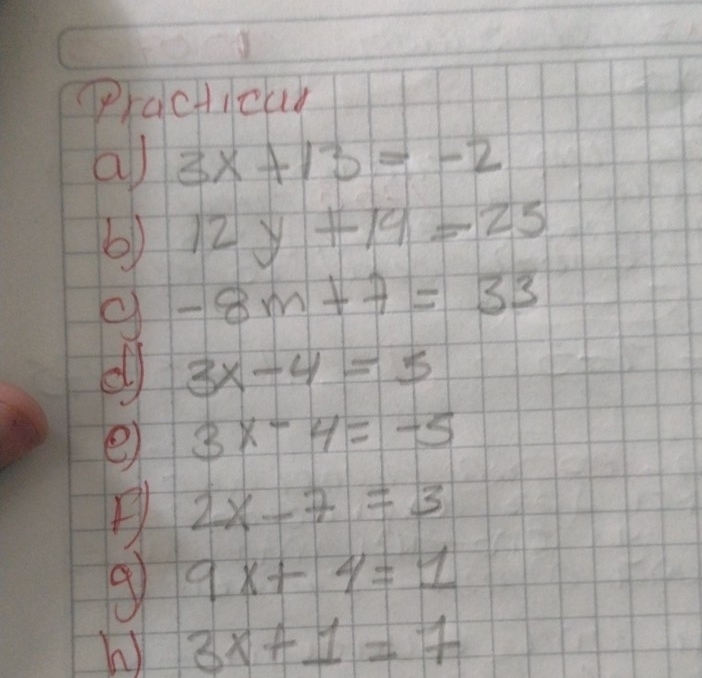 Practicar
a) 3x + 13 = -2
b) 12y + 14 = 25
c) -8m + 7 = 33
d) 3x - 4 = 5
e) 3x - 4 = -5
F) 2x - 7 = 3
g) 9x + 4 = 1
h) 3x + 1 = 7